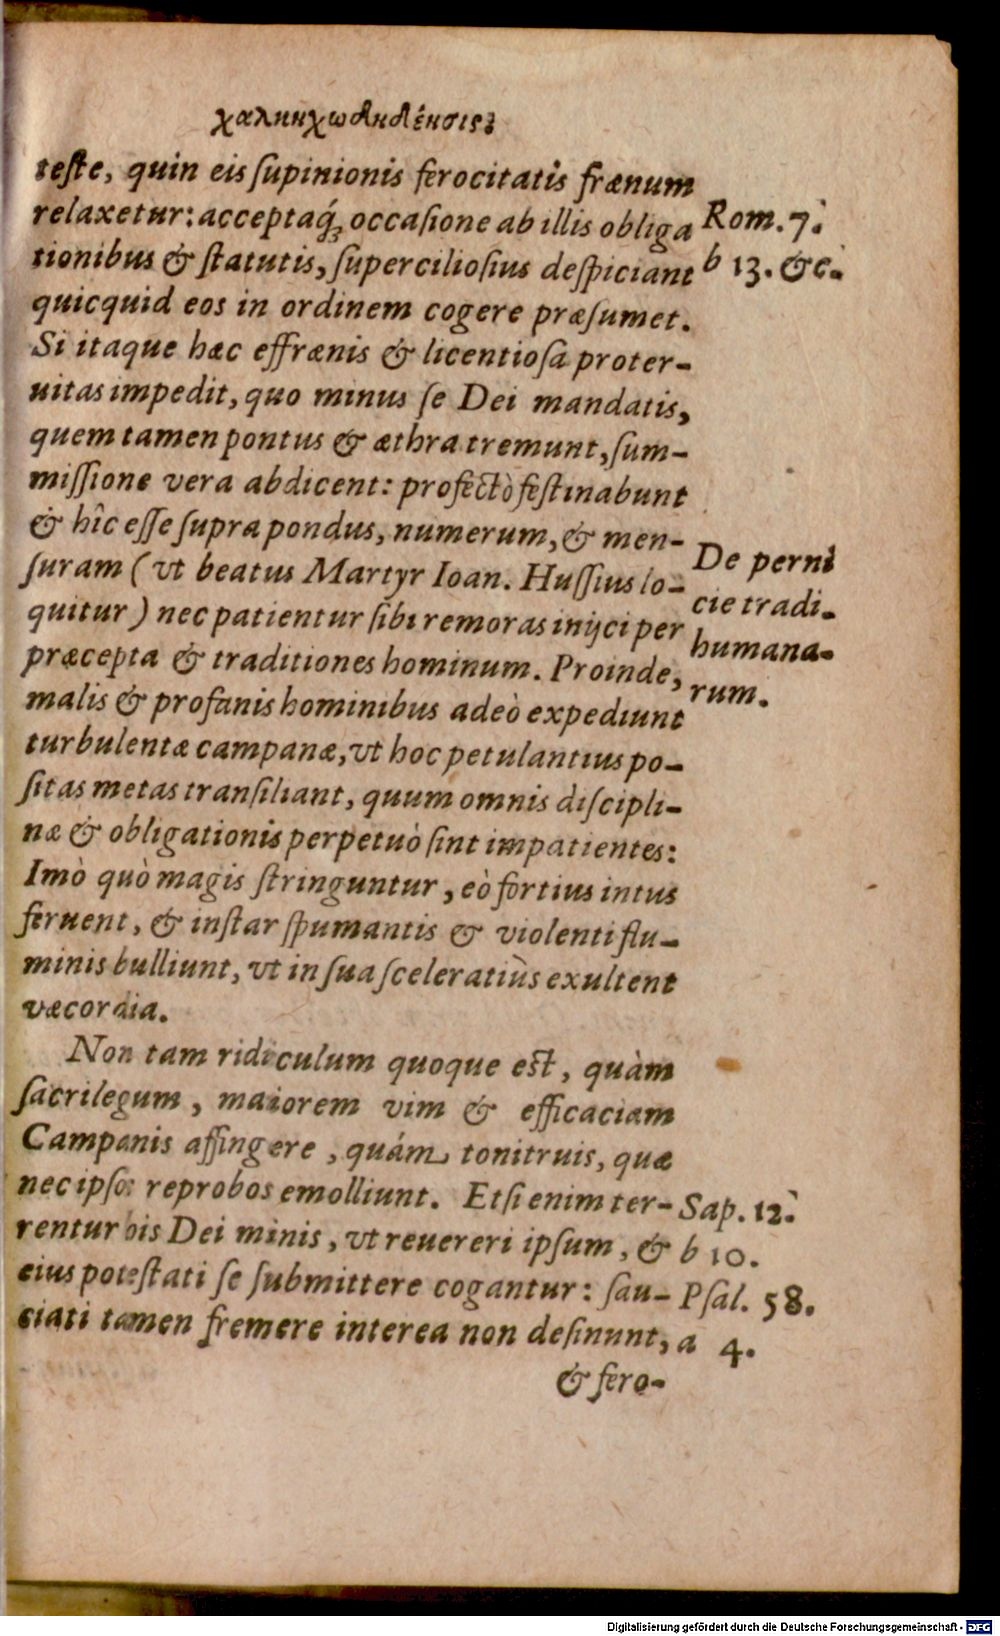 χαληηχωδηδένσις.
teſte, quin eis ſupinionis ferocitatis frænum
relaxetur: acceptaq́; occaſione ab illis obliga
tionibus & ſtatutis, ſupercilioſius deſpiciant
quicquid eos in ordinem cogere præſumet.
Si itaque hæc effrænis & licentioſa proter-
uitas impedit, quo minus ſe Dei mandatis,
quem tamen pontus & æthra tremunt, ſum-
miſſione vera abdicent: profectò feſtinabunt
& hîc eſſe ſupra pondus, numerum, & men-
ſuram (vt beatus Martyr Ioan. Huſſius lo-
quitur) nec patientur ſibi remoras inijci per
præcepta & traditiones hominum. Proinde,
malis & profanis hominibus adeò expediunt
turbulentæ campanæ, vt hoc petulantius po-
ſitas metas tranſiliant, quum omnis diſcipli-
næ & obligationis perpetuò ſint impatientes:
Imò quò magis ſtringuntur, eò fortius intus
feruent, & inſtar ſpumantis & violenti flu-
minis bulliunt, vt in ſua ſceleratiùs exultent
væcordia.
Non tam ridiculum quoque eſt, quàm
ſacrilegum, maiorem vim & efficaciam
Campanis affingere, quám tonitruis, quæ
nec ipſos reprobos emolliunt. Etſi enim ter-
rentur his Dei minis, vt reuereri ipſum, &
eius poteſtati ſe ſubmittere cogantur: ſau-
ciati tamen fremere interea non deſinunt,
& fero-
Rom. 7.
b 13. &c.
De perni
cie tradi-
humana-
rum.
Sap. 12.
b 10.
Pſal. 58.
a 4.
Digitalisierung gefördert durch die Deutsche Forschungsgemeinschaft - DFG